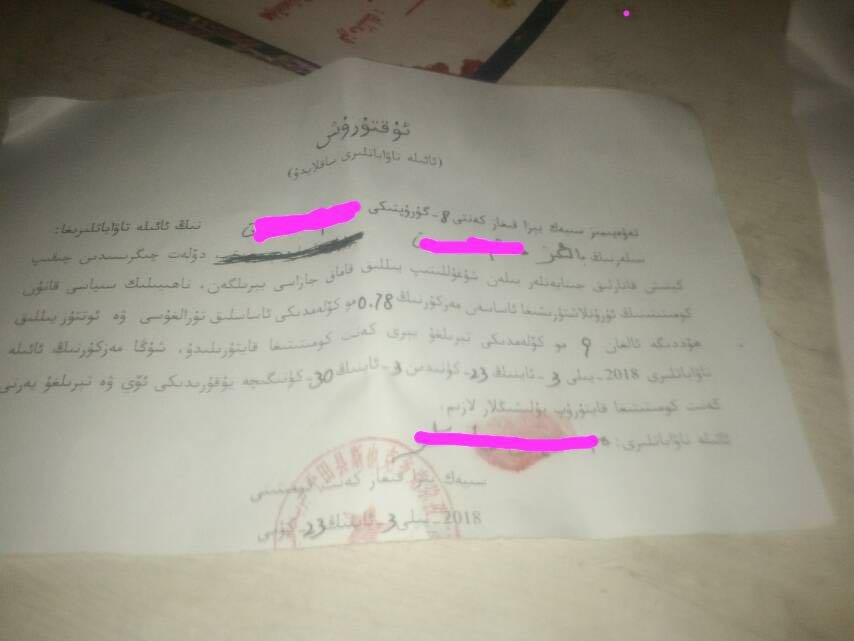 ئۇقتۇرۇش
(ئائىلە تاۋاباتلىرى ساقلايدۇ)
تەۋەيىمىز سىيەك بېزا قىغاز كەنتى 8-گۇرۇپتىكى نىڭ ئائىلە تاۋاباتلىرىغا:
سىلەرنىڭ بالىڭىز دۆلەت چىگرىسىدىن چىقىپ
كېتىش قاتارلىق جىنايەتلەر بىلەن شۇغۇللىنىپ يىللىق قاماق جازاسى بېرىلگەن، ناھىيىلىك سىياسى قانۇن
كومىتىتىنىڭ ئورۇنلاشتۇرىشىغا ئاساسەن مەزكۇرنىڭ 0.78 مو كۆلەمدىكى ئاساسلىق تۇرالغۇسى ۋە ئوتتۇز يىللىق
ھۆددىگە ئالغان 9 مو كۆلەمدىكى تېرىلغۇ يېرى كەنت كومىتىتىغا قايتۇرىلىدۇ، شۇڭا مەزكۇرنىڭ ئائىلە
تاۋاباتلىرى 2018-يىلى 3-ئاينىڭ 23-كۈنىدىن 3-ئاينىڭ 30-كۈنىگىچە يۇقۇرىدىكى ئۆي ۋە تېرىلغۇ يەرنى
كەنت كومىتىتىغا قايتۇرۇپ بۆلىشىڭلار لازىم.
ئائىلە تاۋاباتلىرى:
سىيەك بېزا قىغاز كەنت
2018-يىلى 3-ئاينىڭ 23-كۈنى